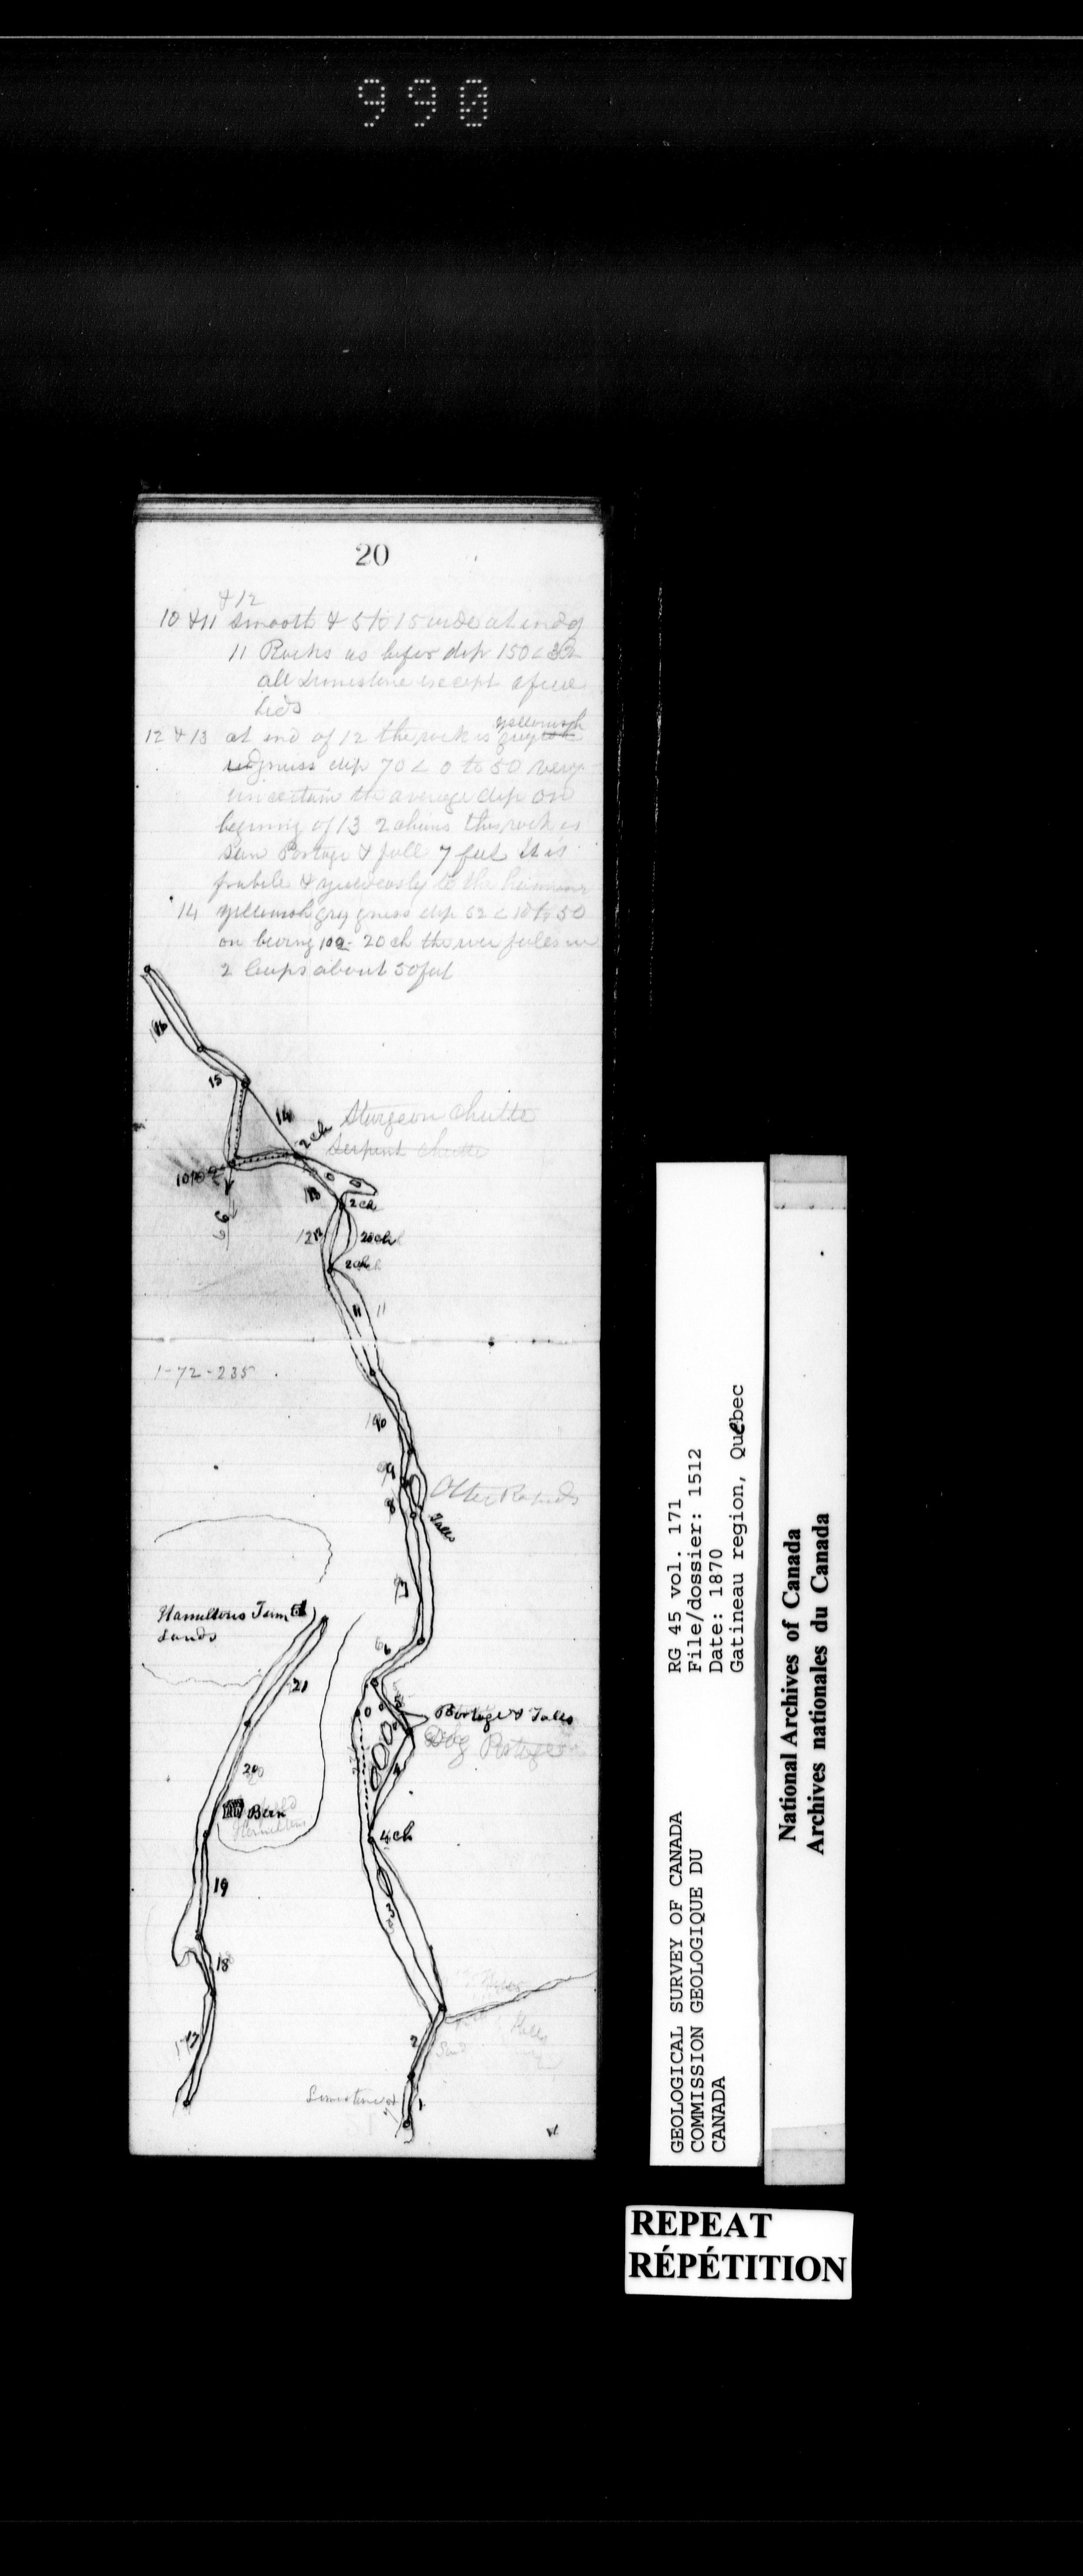 990
20
& 12
10 & 11 smooth & 5 to 15 wide at end of
11 Rocks as before dip 150 < 32
all Limestone except a few
beds
yellowish
12 & 13 at end of 12 the rock is greyish
red gneiss dip 70 < 0 to 50 very
uncertain the average dip on
begining of 13 2 chains this rock is
seen Portage & fall 7 feet it is
14 yellowish grey gneiss dip 52 < 10 to 50
on bearing 102 - 20 ch the river falles in
2 leaps about 50 feet
16
15
14
2 ch
Sturgeon Chutte
Serpent Chutte
66
13
2 ch
12
20 ch
2 ch
11
11
1-72-235
10
9
8
Otter Rapids
Falls
7
6
Hamiltons Farm
Lands
21
5
Portage & Falls
Dog Portage
4
20
Barn
4 ch
19
3
18
2
17
Hills
Sand
Limestone
1
GEOLOGICAL SURVEY OF CANADA
COMMISSION GEOLOGIQUE DU
CANADA
RG 45 vol. 171
File/dossier: 1512
Date: 1870
Gatineau region, Québec
National Archives of Canada
Archives nationales du Canada
REPEAT
RÉPÉTITION